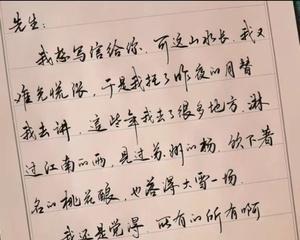 先生：
我想写信给你，可远山水长，我又
难免慌张，于是我托了昨夜的月替
我去讲，这些年我去了很多地方，淋
过江南的雨，见过苏州的杨，饮下着
名的桃花酿，也落得大雪一场，
我还是觉得，所有的所有啊